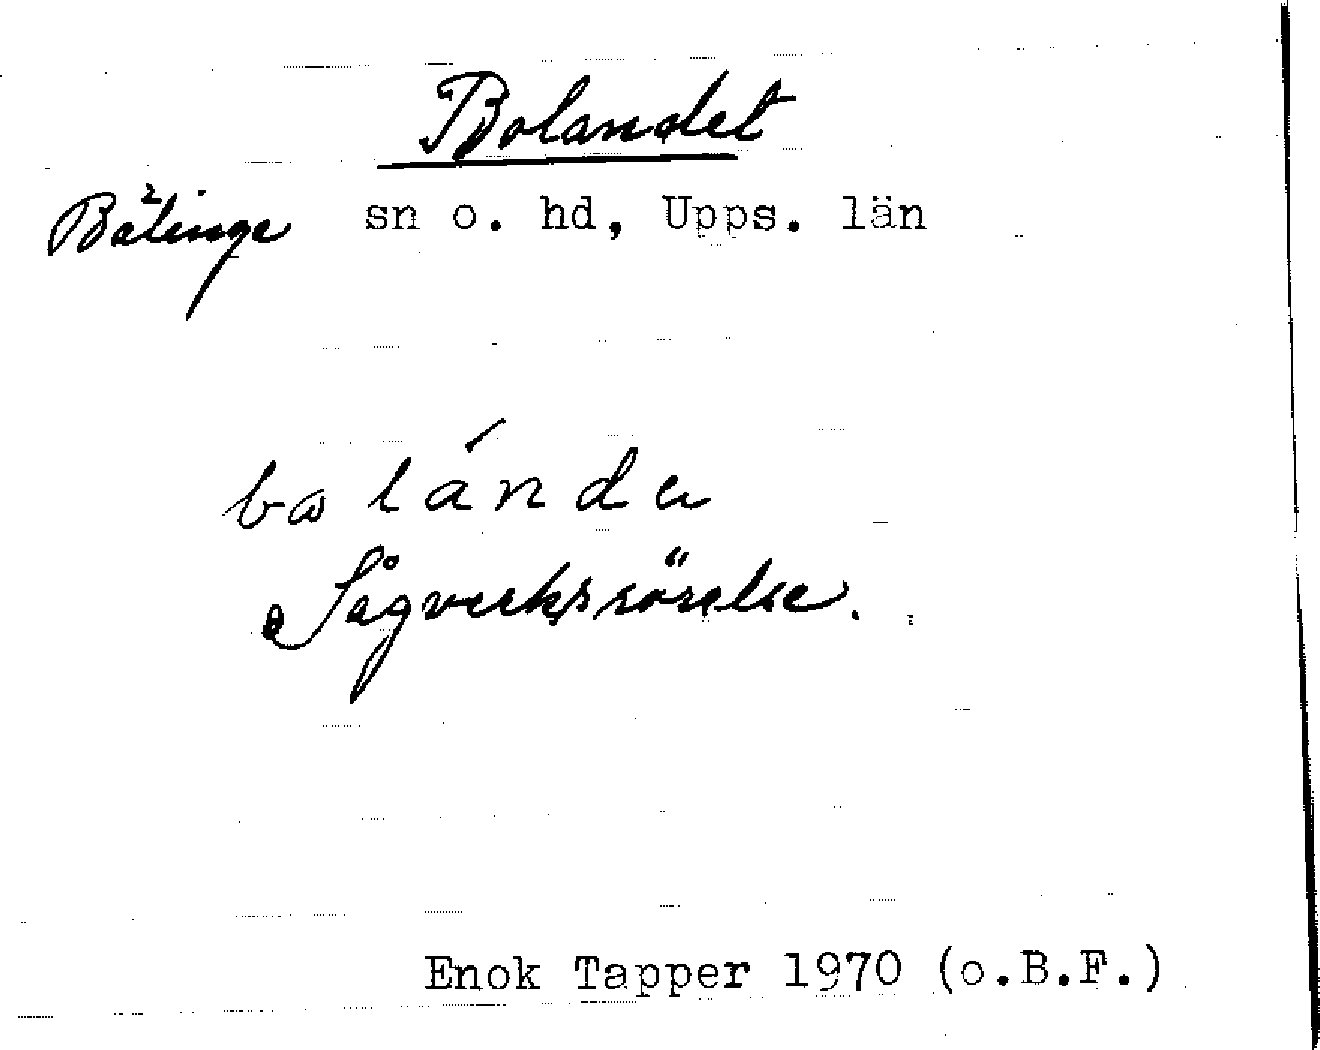 Bolandet
Bälinge sn o. hd, Upps. län
Sågverksrörelse.
Enok Tapper 1970 (o.B.F.)